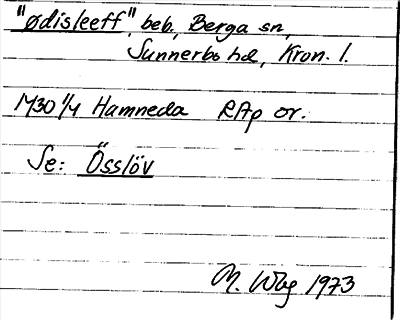 "ødisleeff", beb., Berga sn,
Sunnerbo hd, Kron. l.
1430 1/4 Hamneda RAp or.
Se: Össlöv
M. Wbg 1973